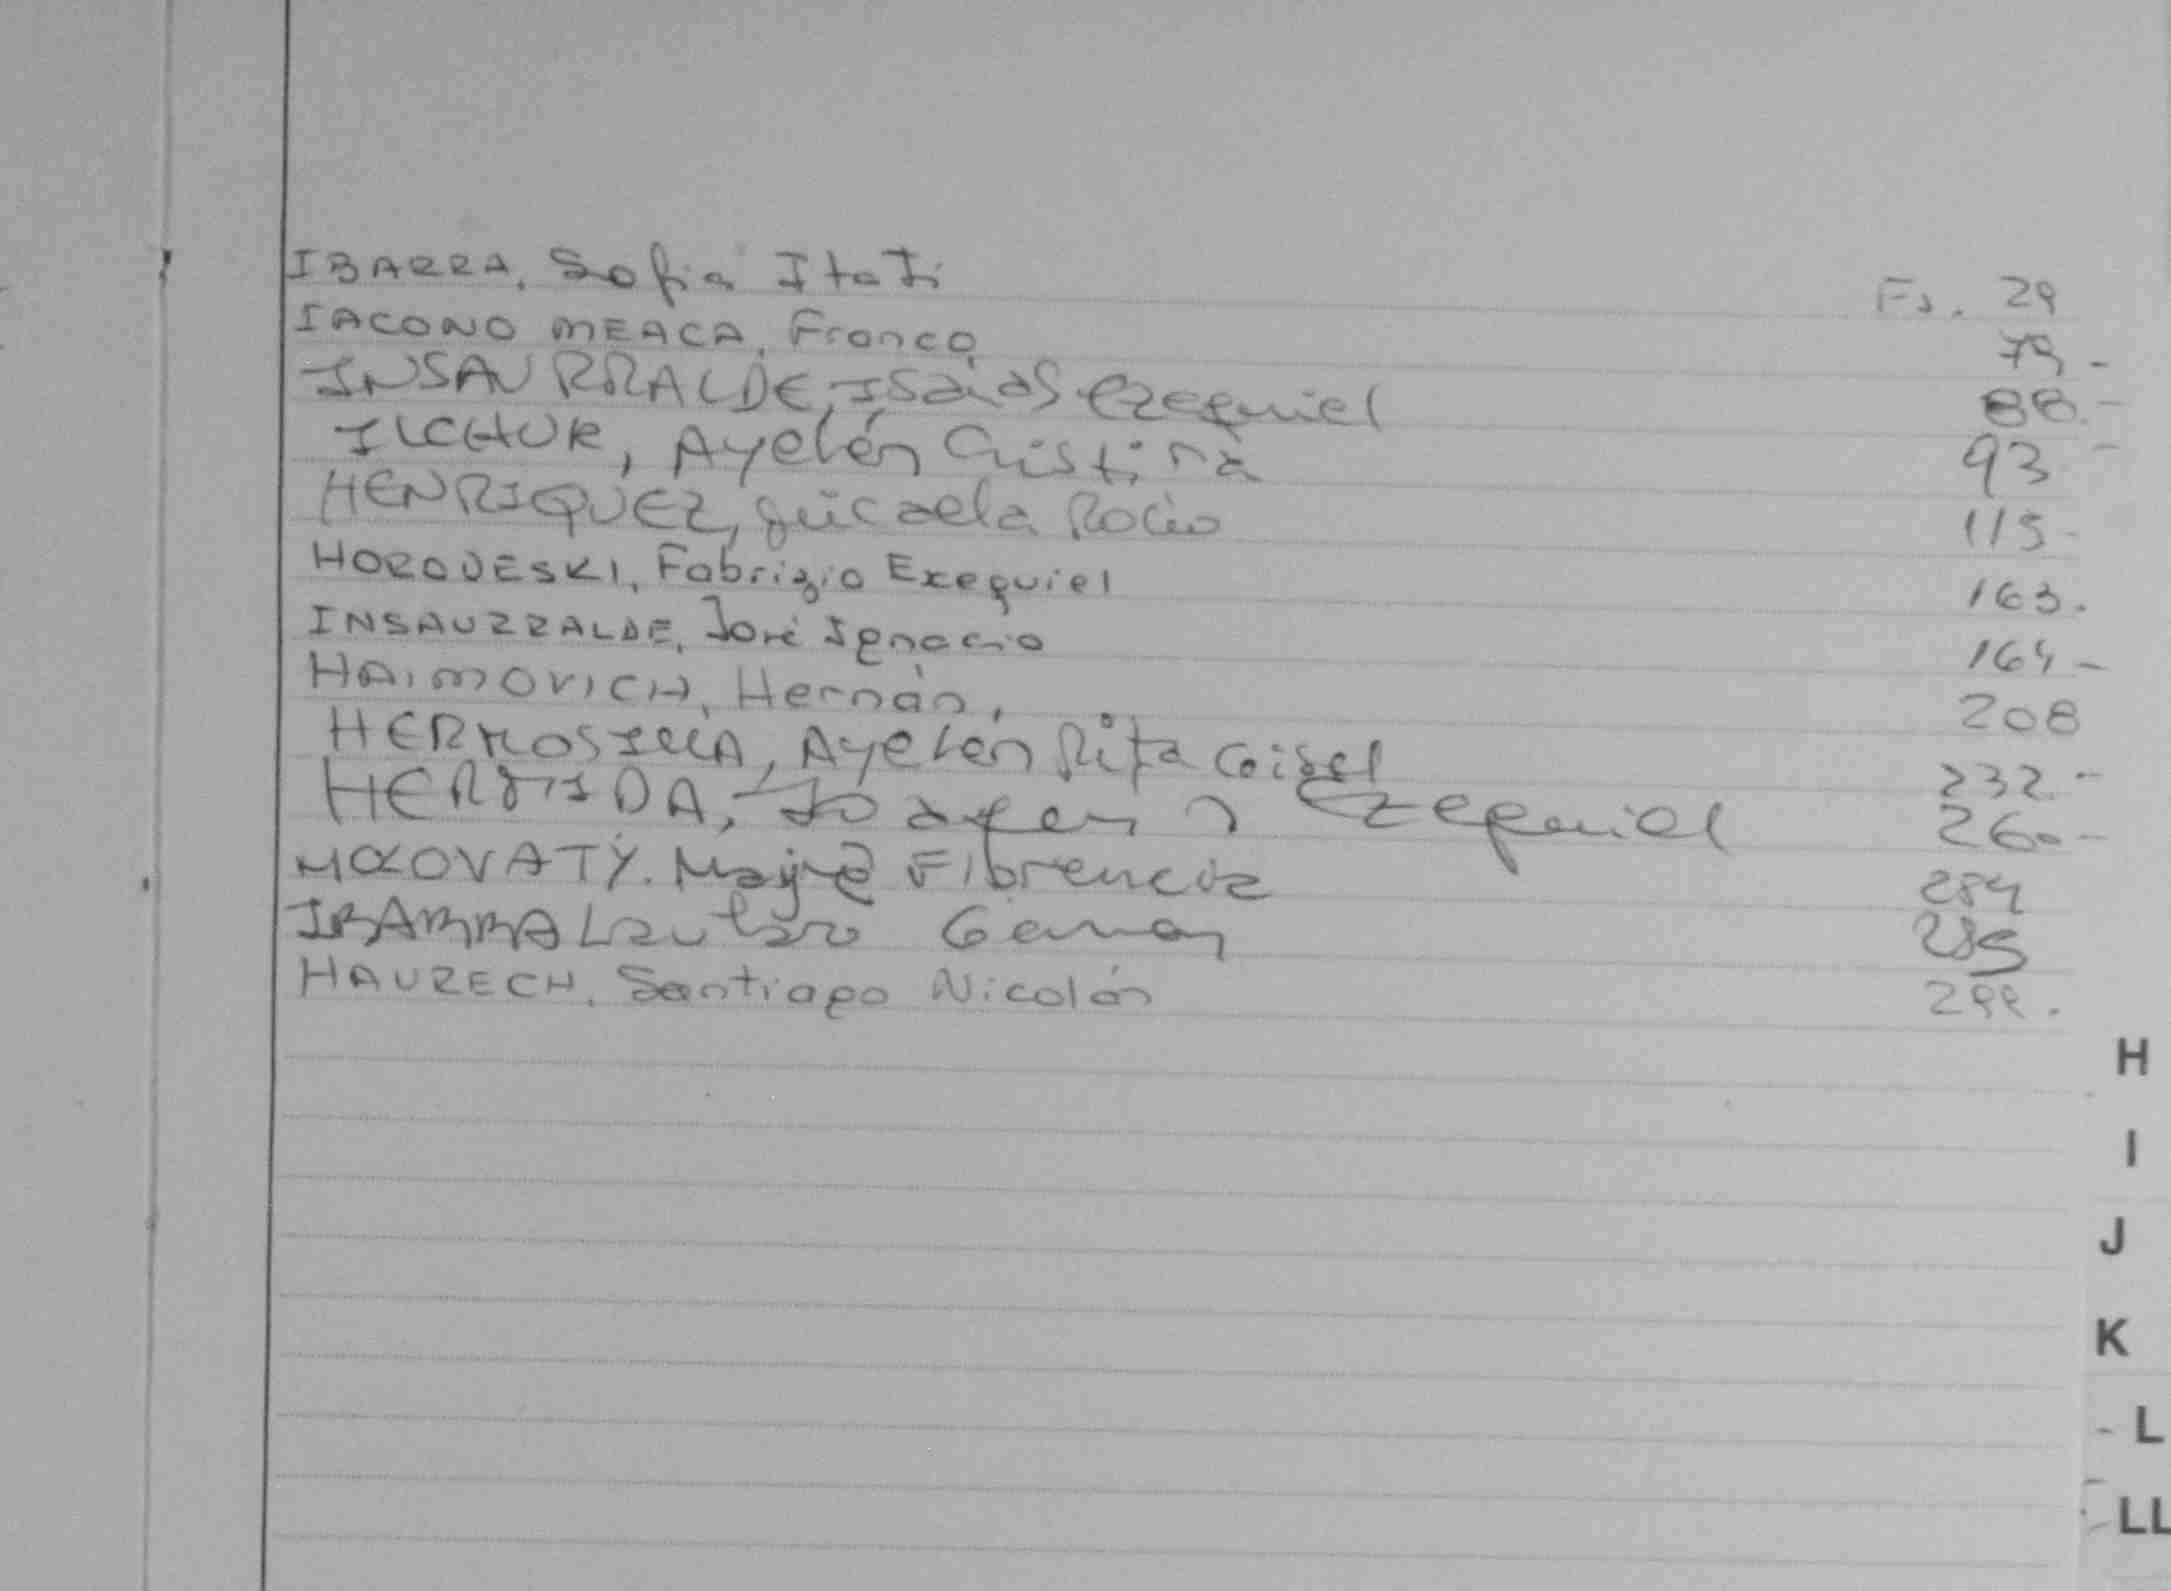 IBARRA, Sofia Itatí Fs. 29
IACONO MEACA, Franco 79.-
INSAURRALDE, Isaías Ezequiel 88.-
ILCHUK, Ayelén Cristina 93.-
HENRIQUEZ, Micaela Rocío 115.-
HORODESKI, Fabrizio Exequiel 163.
INSAURRALDE, José Ignacio 164.-
HAIMOVICH, Hernán, 208
HERMOSILLA, Ayelén Rita 232.-
HERMIDA, Ezequiel 260.-
284
IBARRA Lautaro German 285
HAURECH, Santiago Nicolás 299.
H
I
J
K
L
LL